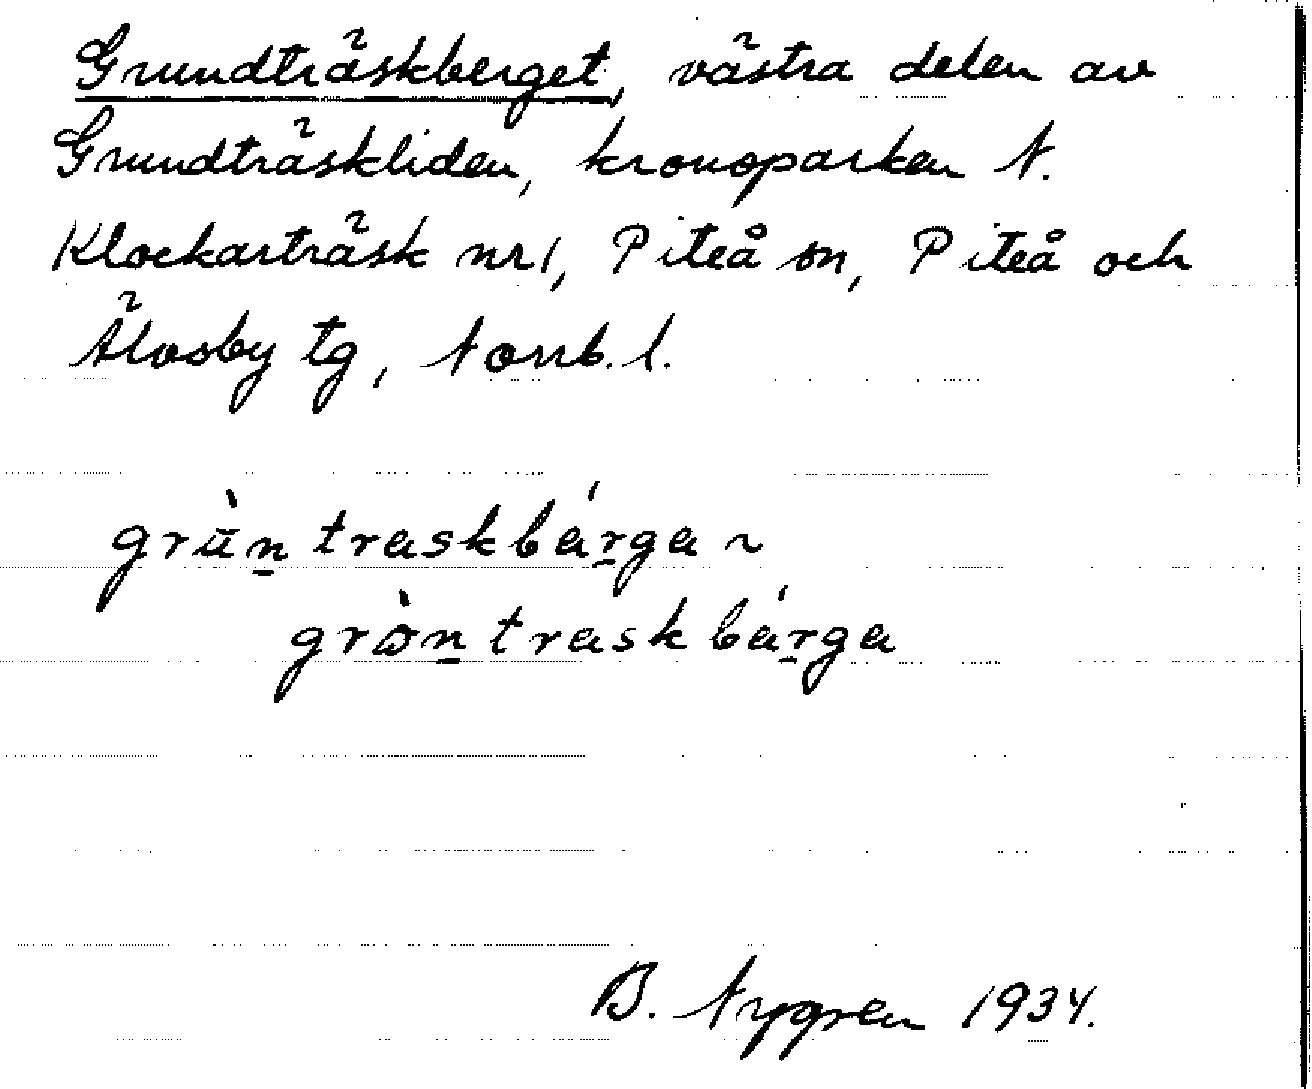 Grundträskberget, västra delen av
Grundträskliden, kronoparken N.
Klockarträsk nr 1, Piteå sn, Piteå och
Älvsby tg, Norrb. l.
grùn̠traskbár̠ga ~
gròn̠traskbár̠ga
B. Nygren 1934.